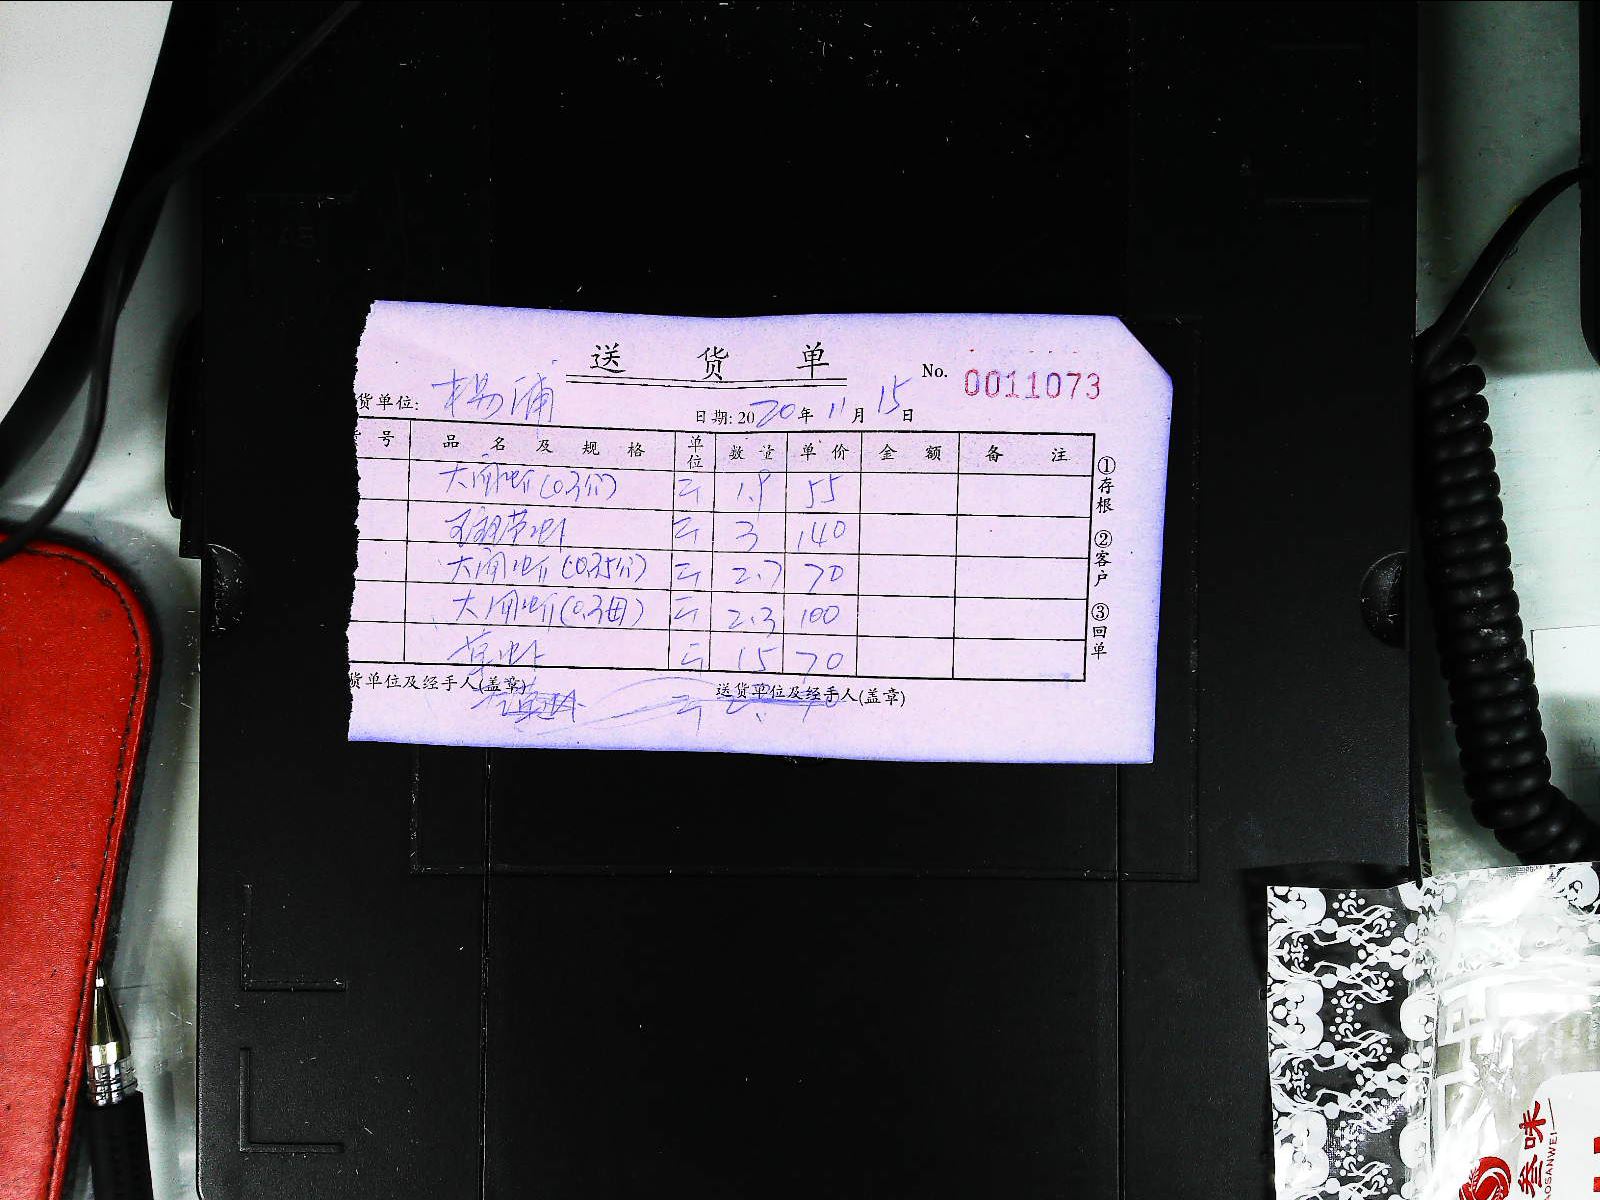 送货单
No. 0011073
货单位: 杨浦 日期: 2020年 11月 15日
号 品名及规格 单位 数量 单价 金额 备注
大闸蟹(0.3公) 斤 1.9 55
节虾 斤 3 140
大闸蟹(0.35公) 斤 2.7 70
大闸蟹(0.3母) 斤 2.3 100
草虾 斤 15 70
货单位及经手人(盖章) 送货单位及经手人(盖章)
斤
①存根 ②客户 ③回单
叁味
OSANWEI